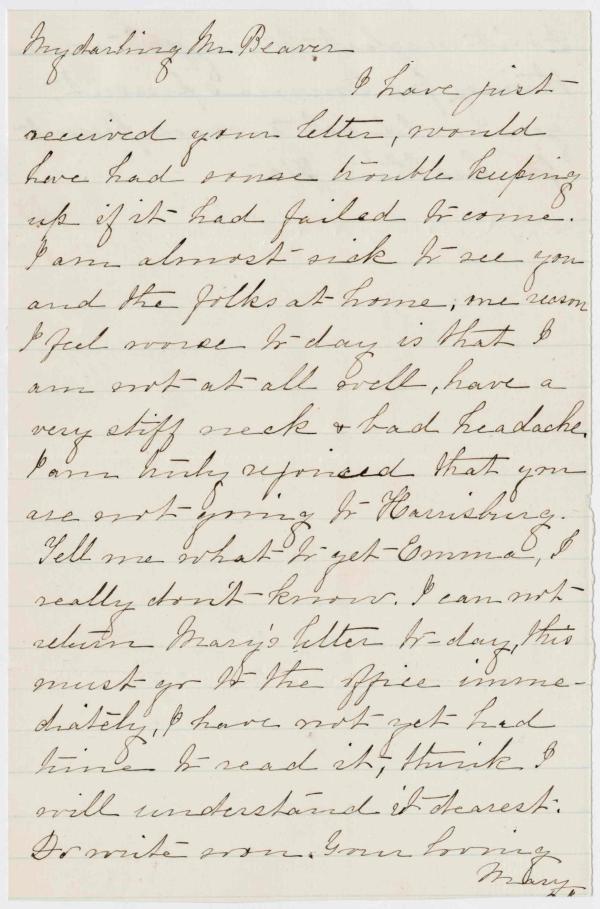 My darling Mr Beaver
I have just
received your letter, would
have had some trouble keeping
up if it had failed to come.
I am almost sick to see you
and the folks at home, one reason
I feel worse to-day is that I
am not at all well, have a
very stiff neck & bad headache.
I am truly rejoiced that you
are not going to Harrisburg.
Tell me what to get Emma, I
really don't know. I can not
return Mary's letter to-day, this
must go to the office imme-
diately, I have not yet had
time to read it, think I
will understand it dearest.
Do write soon. Your loving
Mary